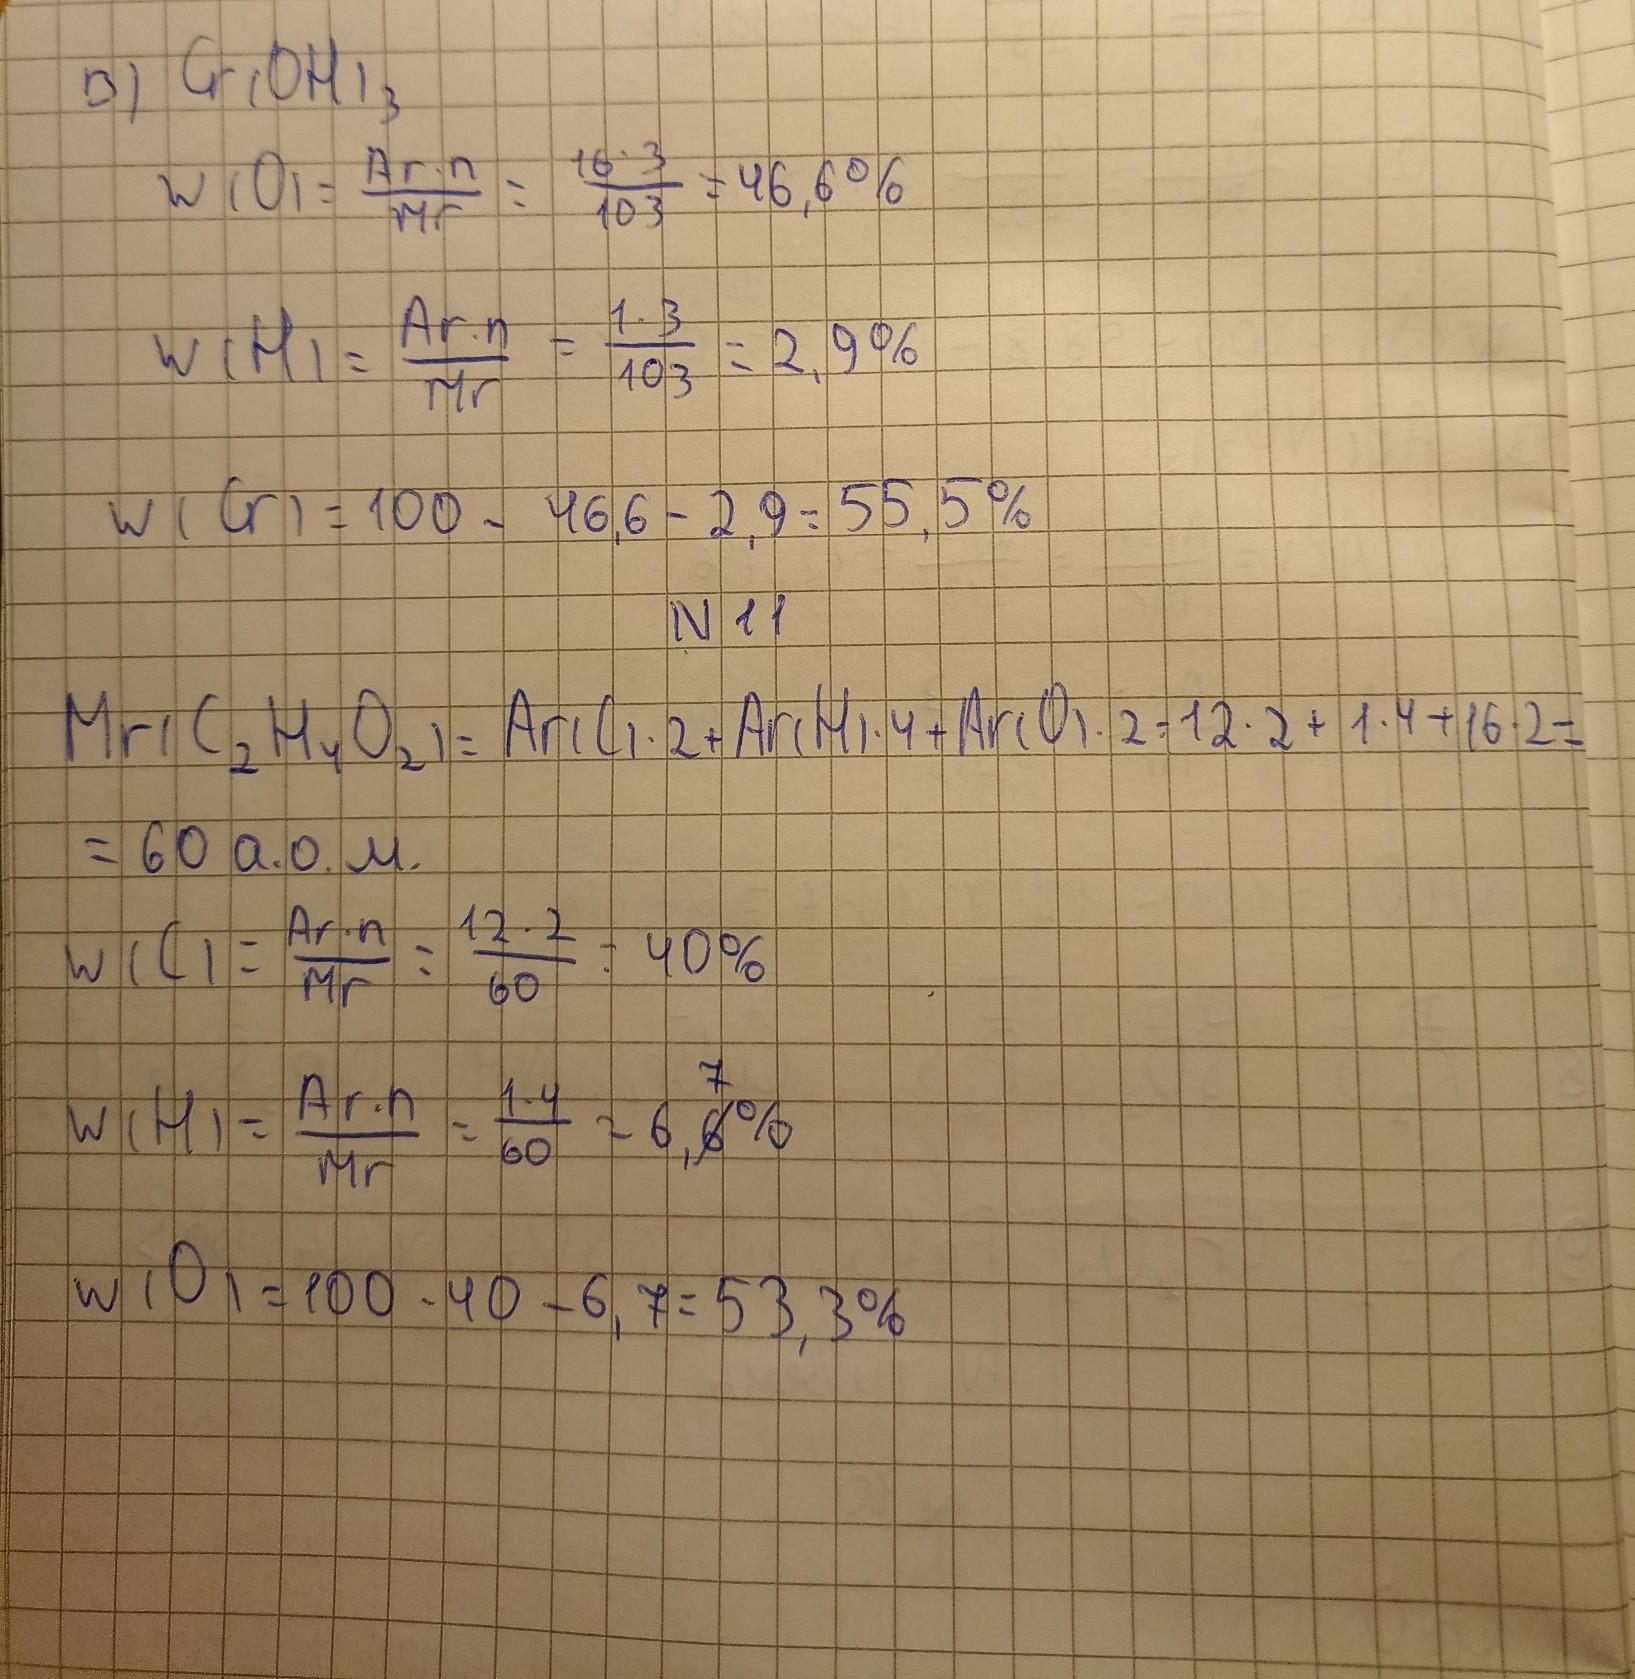 в) Cr(OH)₃
w(O) = Ar·n/Mr = 16·3/103 = 46,6%
w(H) = Ar·n/Mr = 1·3/103 = 2,9%
w(Cr) = 100 - 46,6 - 2,9 = 55,5%
N 11
Mr(C₂H₄O₂) = Ar(C)·2 + Ar(H)·4 + Ar(O)·2 = 12·2 + 1·4 + 16·2 =
= 60 а.о.м.
w(C) = Ar·n/Mr = 12·2/60 = 40%
w(H) = Ar·n/Mr = 1·4/60 = 6,7%
w(O) = 100 - 40 - 6,7 = 53,3%